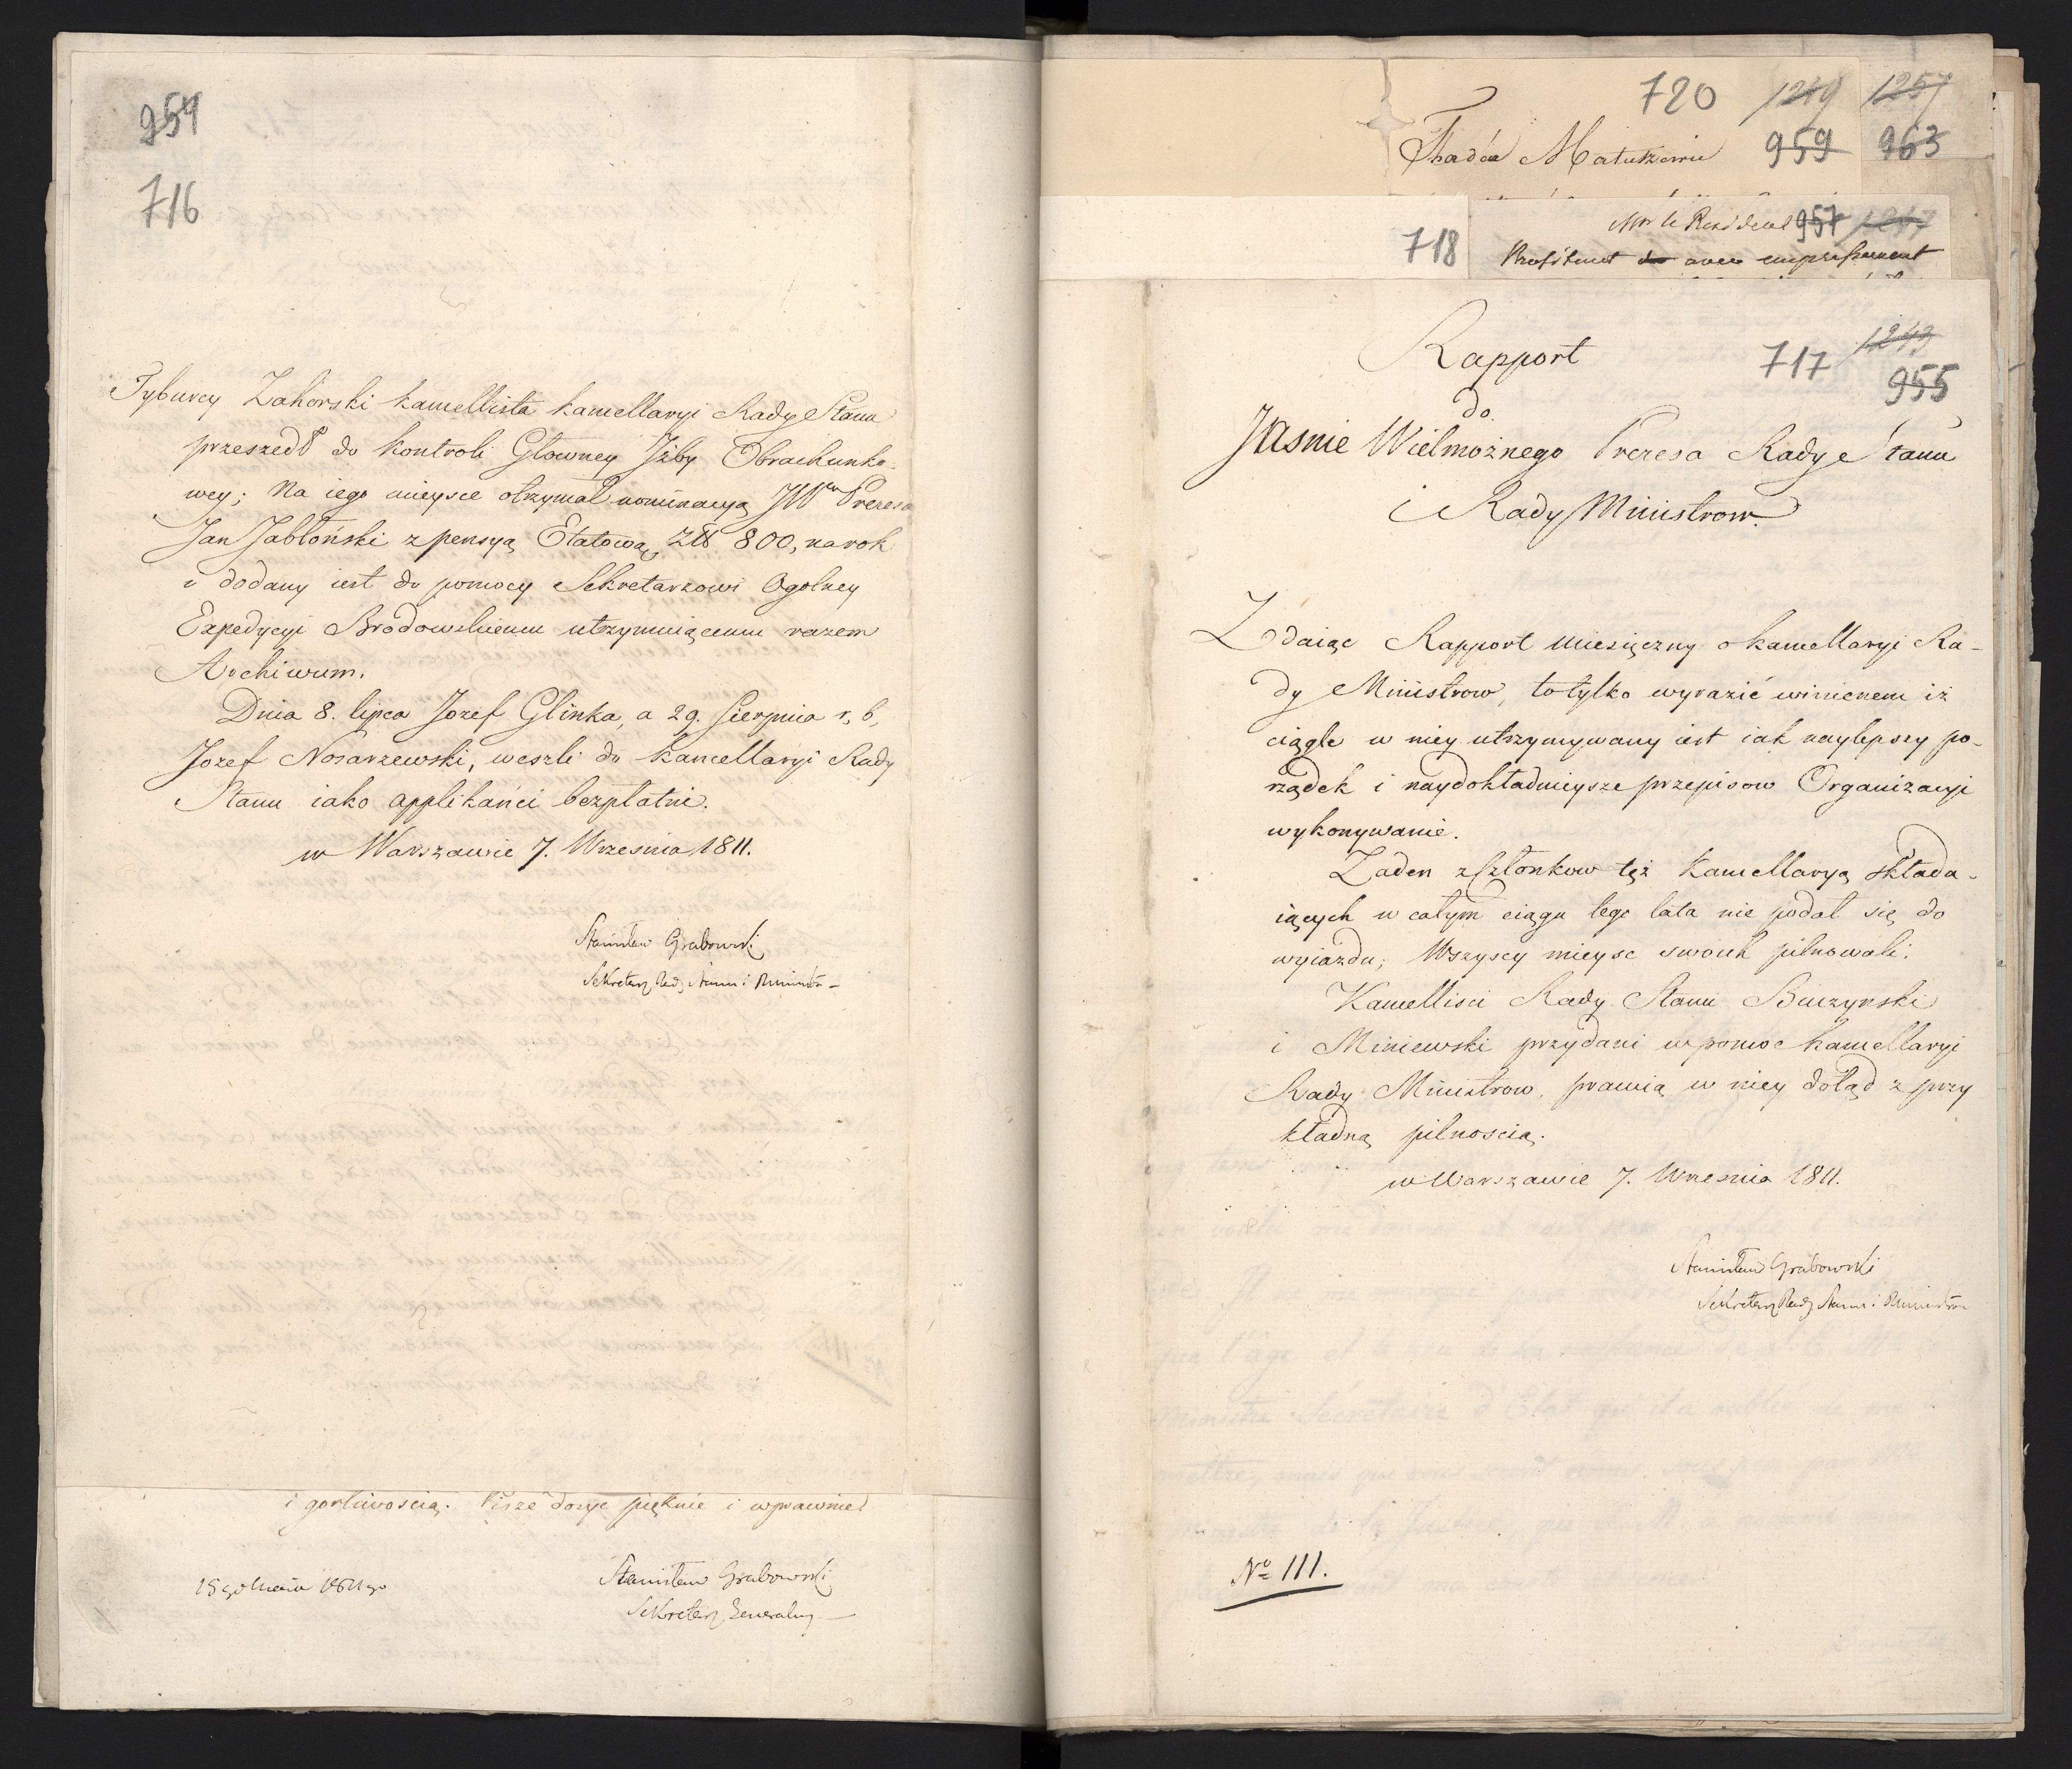 954
716
Tyburcy Zahorski kancellista kancellaryi Rady Stanu
przeszedł do kontroli Głowney Jzby Obrachunko-
wey; Na iego mieysce otrzymał nominacyą JWgo Prezesa
Jan Jabłoński z pensyą Etatową, Złł 800, na rok
i dodany iest do pomocy Sekretarzowi Ogolney
Expedycyi Brodowskiemu utrzymuiącemu razem
Archiwum.
Dnia 8. lipca Jozef Glinka, a 29. Sierpnia r, b,
Jozef Nosarzewski, weszli do kancellaryi Rady
Stanu iako applikańci bezpłatni.
w Warszawie 7. Września 1811.
Stanisław Grabowski
Sekretarz Rady Stanu i Ministrów
i gorliwoscią. Pisze dosyc pięknie i wprawnie
15go 1811go
Stanisław Grabowski
Sekretarz Generalny
720 1249 1257
Thadéa Matuszewic 959 963
Mr le Resident 957
718 Profitant avec empressement
Rapport
717 1243
955
do
Jasnie Wielmożnego Prezesa Rady Stanu
i Rady Ministrow.
Zdaiąc Rapport miesięczny o kancellaryi Ra-
dy Ministrow, to tylko wyrazić winienem iż
ciągle w niey utrzymywany iest iak naylepszy po-
rządek i naydokładnieysze przepisow Organizacyi
wykonywanie.
Zaden z Członkow tęż Kancellaryą składa-
iących w całym ciągu tego lata nie podał się do
wyiazdu; Wszyscy mieysc swoich pilnowali.
Kancellisci Rady Stanu Buczynski
i Miniewski przydani w pomoc kancellaryi
Rady Ministrow, pracuią w niey dotąd z przy
kładną pilnoscią.
w Warszawie 7. Wrzesnia 1811.
Stanisław Grabowski
Sekretarz Rady Stanu i Ministrów
No 111.